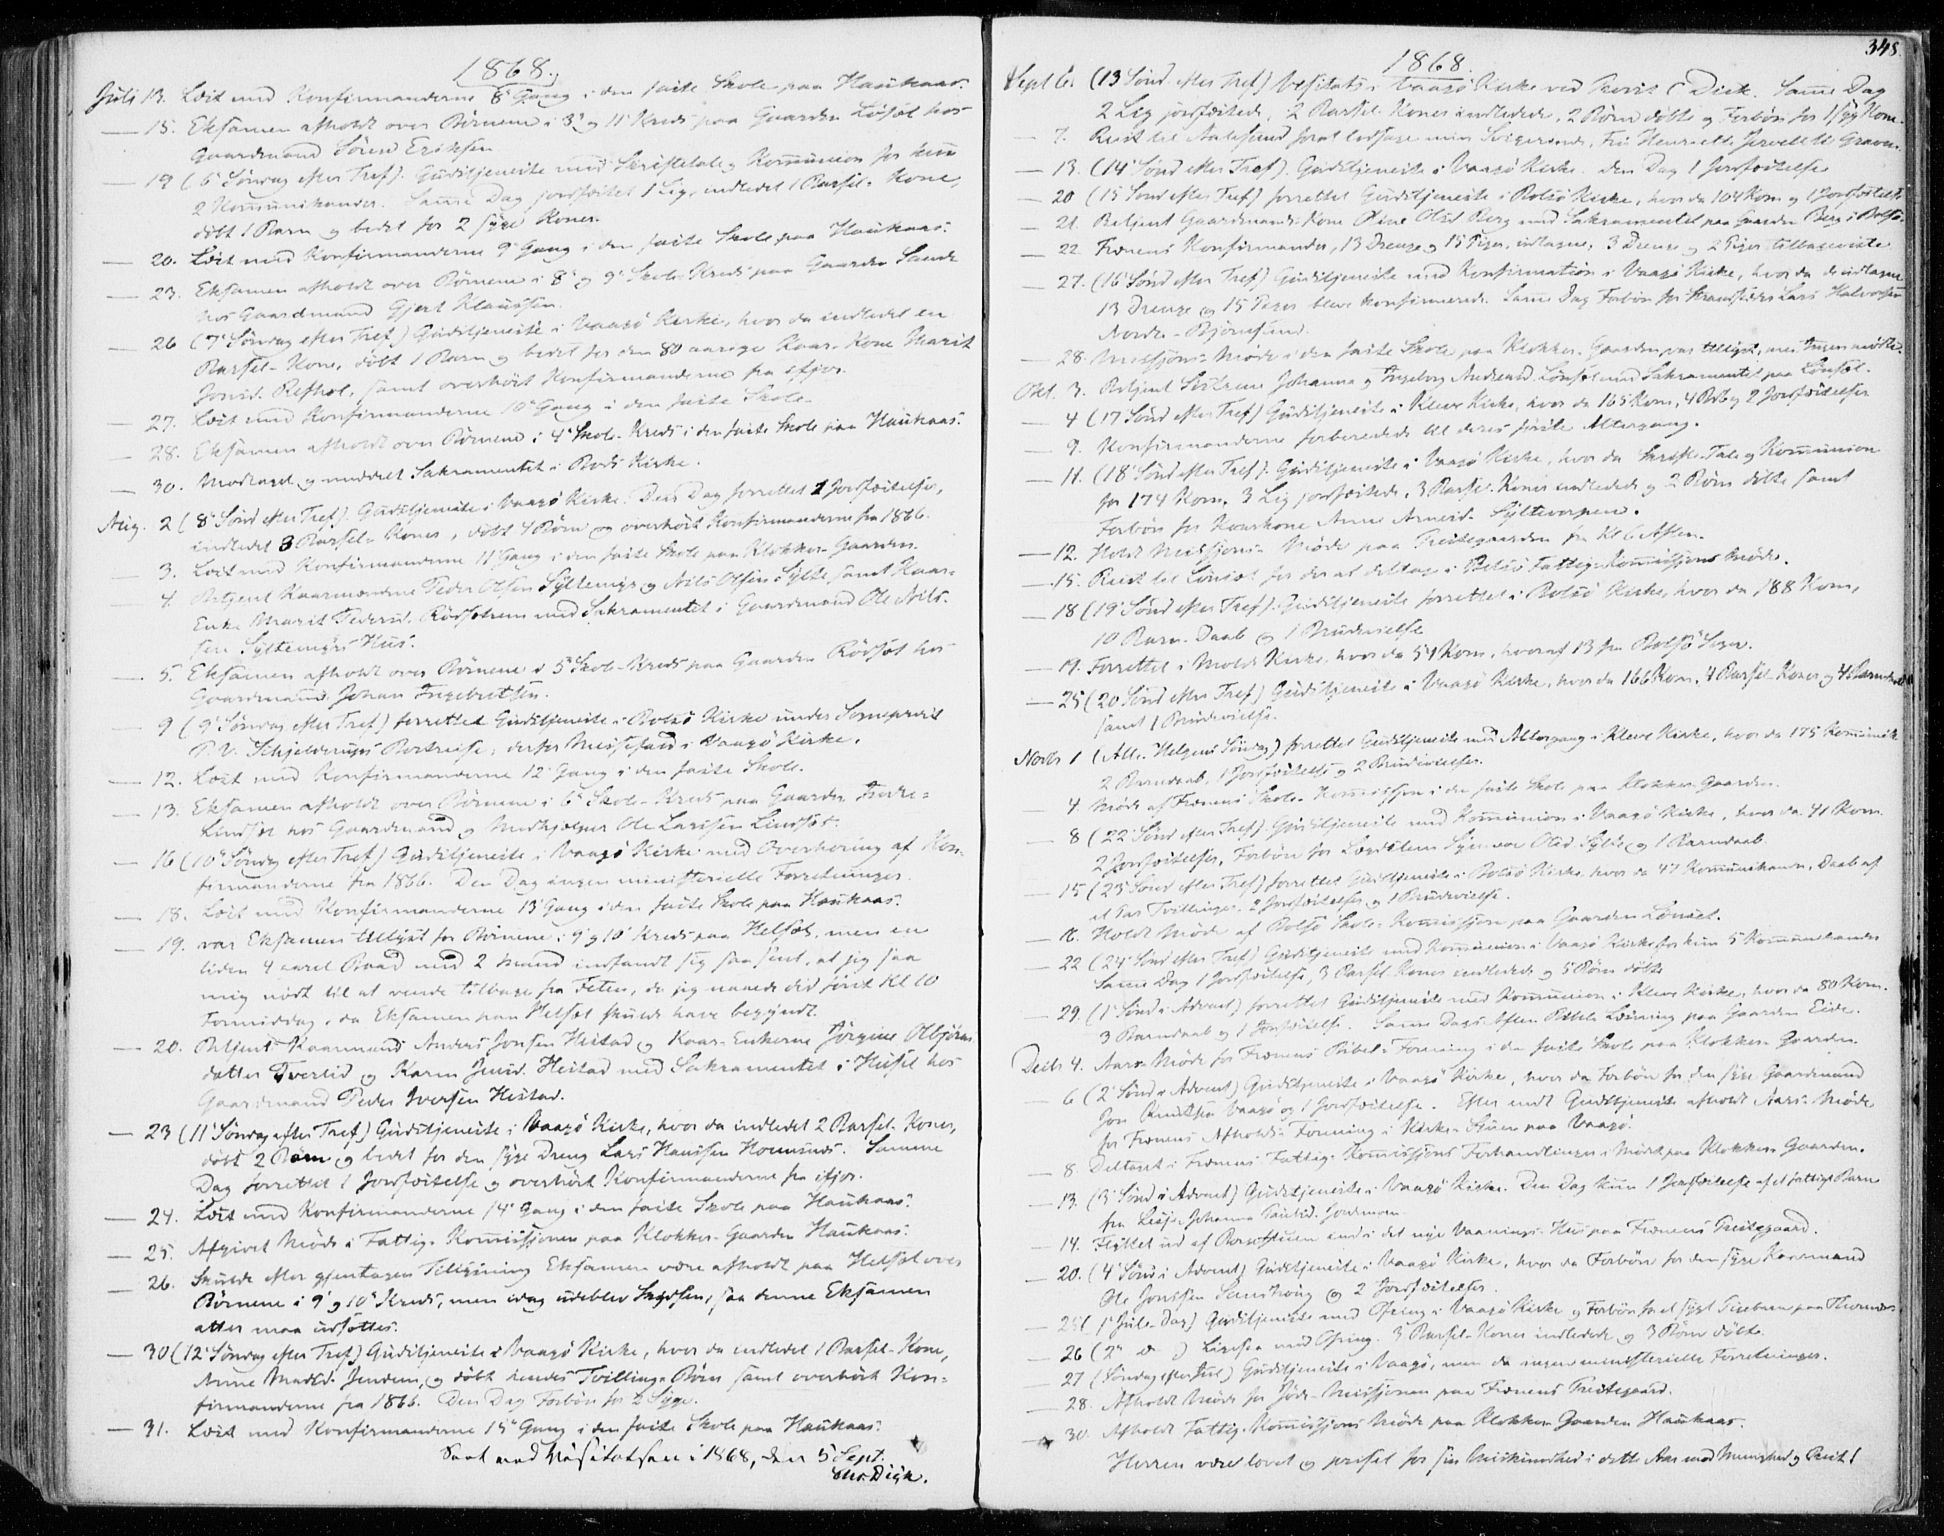 1868.
Juli 13. Læst med Konfirmanderne 8de Gang i den faste Skole paa Haukaas.
— 15. Eksamen afholdt over Børnene i 3' og 11' Kreds paa Gaarden Lønset hos
Gaardmand Sören Eriksen
— 19 (6' Søndag efter Tref). Gudstjeneste med Skriftetale og Kommunion for kun
2 Kommunikanter. Samme Dag jordfæstet 1 Lig, indledet 1 Barsel-Kone,
döbt 1 Barn og bedet for 2 syge Koner.
— 20. Læst med Konfirmanderne 9' Gang i den faste Skole paa Haukaas.
— 23. Eksamen afholdt over Børnene i 8' og 9' Skole-Kreds paa Gaarden Sande
hos Gaardmand Gjert Klaussen.
— 26 (7' Søndag efter Tref) Gudstjeneste i Vaagö Kirke, hvor da indledet en
Barsel-Kone, döbt 1 Barn og bedet for den 80 aarige Kaar-Kone Marit
Jonsd. Refhol, samt overhört Konfirmanderne fra ifjor.
— 27. Læst med Konfirmanderne 10' Gang i den faste Skole.
— 28. Eksamen afholdt over Børnene i 4' Skole-Kreds i den faste Skole paa Haukaas.
— 30. Modtaget og meddelt Sakramentet i Bods Kirke.
Aug. 2 (8' Sönd efter Tref). Gudstjeneste i Vaagö Kirke. Den Dag forrettet 1 Jordfæstelse,
indledet 3 Barsel-Koner, döbt 4 Börn og overhört Konfirmanderne fra 1866.
— 3. Læst med Konfirmanderne 11' Gang i den faste Skole paa Klokker-Gaarden.
— 4. Betjent Kaarmændene Peder Olsen Syltemyr og Nils Olsen Sylte samt Kaar-
Enke Marit Pedersd. Rödsetrem med Sakramentet i Gaardmand Ole Nils-
sen Syltemyrs Hus.
— 5. Eksamen afholdt over Börnene i 5' Skole-Kreds paa Gaarden Rödset hos
Gaardmand Johan Ingebrigtsen.
— 9 (9' Søndag efter Tref) forrettet Gudstjeneste i Bolsö Kirke under Sogneprest
P. V. Schjelderups Bortreise; derfor Messefald i Vaagö Kirke.
— 12. Læst med Konfirmanderne 12' Gang i den faste Skole.
— 13. Eksamen afholdt over Börnene i 6' Skole-Kreds paa Gaarden Nedre-
Lindset hos Gaardmand og Medhjælper Ole Larssen Lindset.
— 16 (10' Søndag efter Tref) Gudstjeneste i Vaagö Kirke med Overhöring af Kon-
firmanderne fra 1866. Den Dag ingen ministerielle Forretninger.
— 18. Læst med Konfirmanderne 13' Gang i den faste Skole paa Haukaas.
— 19. var Eksamen tillyst for Börnene i 9' og 10' Kreds paa Helset, men en
liden 4 aaret Baad med 2 Mand indfandt sig saa sent, at jeg saa
mig nödt til at vende tilbage fra Feten, da jeg naaede did först Kl 10
Formiddag, da Eksamen paa Helset skulde have begyndt.
— 20. Betjent Kaarmand Anders Jonsen Hestad og Kaar-Enkerne Jörgine Olbjörns
datter Tverlid og Karen Jensd. Hestad med Sakramentet i Huset hos
Gaardmand Peder Iversen Hestad.
— 23 (11' Søndag efter Tref) Gudstjeneste i Vaagö Kirke, hvor da indledet 2 Barsel-Koner,
döbt 2 Börn og bedet for den syge Dreng Lars Hanssen Hornsnes. Samme
Dag forrettet 1 Jordfæstelse og overhört Konfirmanderne fra ifjor.
— 24. Læst med Konfirmanderne 14' Gang i den faste Skole paa Haukaas.
— 25. Afgivet Möde i Fattig-Kommissjonen paa Klokker-Gaarden Haukaas.
— 26. Skulde efter gjentagen Tillysning Eksamen være afholdt paa Helset over
Börnene i 9' og 10' Kreds, men idag udeblev Skydsen, saa denne Eksamen
atter maa udsættes.
— 30 (12' Søndag efter Tref) Gudstjeneste i Vaagö Kirke, hvor da indledet 1 Barsel-Kone,
Anne Madsd. Jendem, og döbt hendes Tvillinge-Börn samt overhört Kon-
firmanderne fra 1866. Den Dag Forbön for 2 Syge.
— 31. Læst med Konfirmanderne 15' Gang i den faste Skole paa Haukaas.
Seet ved Visitatsen i 1868, den 5 Sept.
Chr. Dick.
345
1868.
Sept 6. (13 Sönd. efter Tref) Visitats i Vaagö Kirke ved Provst C Dick. Samme Dag
2 Lig jordfæstede, 2 Barsel-Koner indledede, 2 Börn döbte og Forbön for 1 syg Kone.
— 7. Reist til Aalesund for at ledsage min Svigerinde, Frk Henriette Jervell til
— 13. (14' Sönd efter Tref). Gudstjeneste i Vaagö Kirke. den Dag 1 Jordfæstelse
— 20 (15 Sönd efter Tref) forrettet Gudstjeneste i Bolsö Kirke, hvor da 104 Kom. og 1 Jordfæstelse
— 21. Betjent Gaardmands-Kone Oline Olsd Berg med Sakramentet paa Gaarden Berg i Bolsö.
— 22. Frænens Konfirmander, 13 Drenge og 15 Piger, udtagne; 3 Drenge og 2 Piger tilbageviste
— 27. (16' Sönd efter Tref) Gudstjeneste med Konfirmation i Vaagö Kirke, hvor da de udtagne
13 Drenge og 15 Piger bleve konfirmerede. Samme Dag Forbön for Strandsidder Lars Halvorsen
Nordre-Björnsund.
— 28. Missjons-Möde i den faste Skole paa Klokker-Gaarden var tillyst, men Ingen mödte.
Okt. 3. Betjent Söstrene Johanna og Ingeborg Andreasd. Lönset med Sakramentet paa Lönset.
— 4 (17 Sönd efter Tref) Gudstjeneste i Kleve Kirke, hvor da 165 Kom, 4 Bdb og 2 Jordfæstelser
— 9. Konfirmanderne forberedede til deres förste Altergang.
— 11. (18' Sönd efter Tref). Gudstjeneste i Vaagö Kirke, hvor da Skrifte-Tale og Kommunion
for 174 Kom. 3 Lig jordfæstede, 3 Barsel-Koner indledede og 2 Börn döbte samt
Forbön for Kaarkone Anne Arnesd. Syltevorpen.
— 12. Holdt Missjons-Möde paa Prestegaarden fra Kl 6 Aften.
— 15. Reist til Lönset for der at deltage i Bolsö Fattig-Kommissjons Möde.
— 18 (19' Sönd efter Tref). Gudstjeneste forrettet i Bolsö Kirke, hvor da 188 Kom,
10 Barn-Daab og 1 Brudevielse
— 19. Forrettet i Molde Kirke, hvor da 54 Kom, hvoraf 13 fra Bolsö Sogn.
— 25 (20 Sönd efter Tref) Gudstjeneste i Vaagö Kirke, hvor da 166 Kom. 4 Barsel Koner og 4 Barnedaab
samt 1 Brudevielse.
Novbr 1 (Alle-Helgens Söndag) forrettet Gudstjeneste med Altergang i Kleve Kirke, hvor da 175 Kommunik
2 Barndaab, 1 Jordfæstelse og 2 Brudevielser.
— 4 Möde af Frænens Skole-Kommissjon i den faste Skole paa Klokker-Gaarden.
— 8 (22 Sönd efter Tref). Gudstjeneste med Kommunion i Vaagö Kirke, hvor da 41 Kom.
2 Jordfæstelser, Forbön for Olsd. Sylte og 1 Barndaab.
— 15 (23' Sönd efter Tref) forrettet Gudstjeneste i Bolsö Kirke, hvor da 47 Kommunikanter, Daab af
et Par Tvillinger, 2 Jordfæstelser og 1 Brudevielse.
— Holdt Möde af Bolsö Skole-Kommissjon paa Gaarden Lönset.
— 22 (24' Sönd efter Tref) Gudstjeneste med Kommunion i Vaagö Kirke for kun 5 Kommunikanter
Samme Dag 1 Jordfæstelse, 3 Barsel-Koner indledede og 5 Börn döbte
— 29. (1' Sönd i Advent) forrettet Gudstjeneste med Kommunion i Kleve Kirke, hvor da 80 Kom.
3 Barndaab og 1 Jordfæstelse. Samme Dags Aften Bibel-Læsning paa Gaarden Eide.
Decbr 4. Aars-Möde for Frænens Bibel-Forening i den faste Skole paa Klokker-Gaarden.
— 6 (2' Sönd i Advent) Gudstjeneste i Vaagö Kirke, hvor da Forbön for den syge Gaardmand
Jon Knutssen Vaagö og 1 Jordfæstelse. Efter endt Gudstjeneste afholdt Aars-Möde
for Frænens Afholds-Forening i Kirke-Stuen paa Vaagö.
— 8. Deltaget i Frænens Fattig-Kommissjons Forhandlinger i Möde paa Klokker-Gaarden.
— 13. (3' Sönd i Advent) Gudstjeneste i Vaagö Kirke. Den Dag kun 1 Jordfæstelse af et fattigt Barn
fra Johanna
— 14. Flyttet ud af Borgestuen ind i det nye Vaanings-Hus paa Frænens Prestegaard.
— 20. (4' Sönd i Advent) Gudstjeneste i Vaagö Kirke, hvor da Forbön for den syge Kaarmand
Ole Jonssen og 2 Jordfæstelser.
— 25 (1' Jule-Dag) Gudstjeneste med Ofring i Vaagö Kirke og Forbön for et sygt Pigebarn paa
— 26 (2' " ) Ligesaa med Ofring. 3 Barsel-Koner indledede og 3 Börn döbte.
— 27 (Söndag efter Jul) Gudstjeneste i Vaagö, men da ingen ministerielle Forretninger.
— 28. Afholdt Möde for Jöde-Missjonen paa Frænens Prestegaard.
— 30. Afholdt Fattig-Kommissjons Möde paa Klokker-Gaarden Haukaas.
Herren være lovet og priset for sin Miskundhed i dette Aar mod Menighed og Prest!